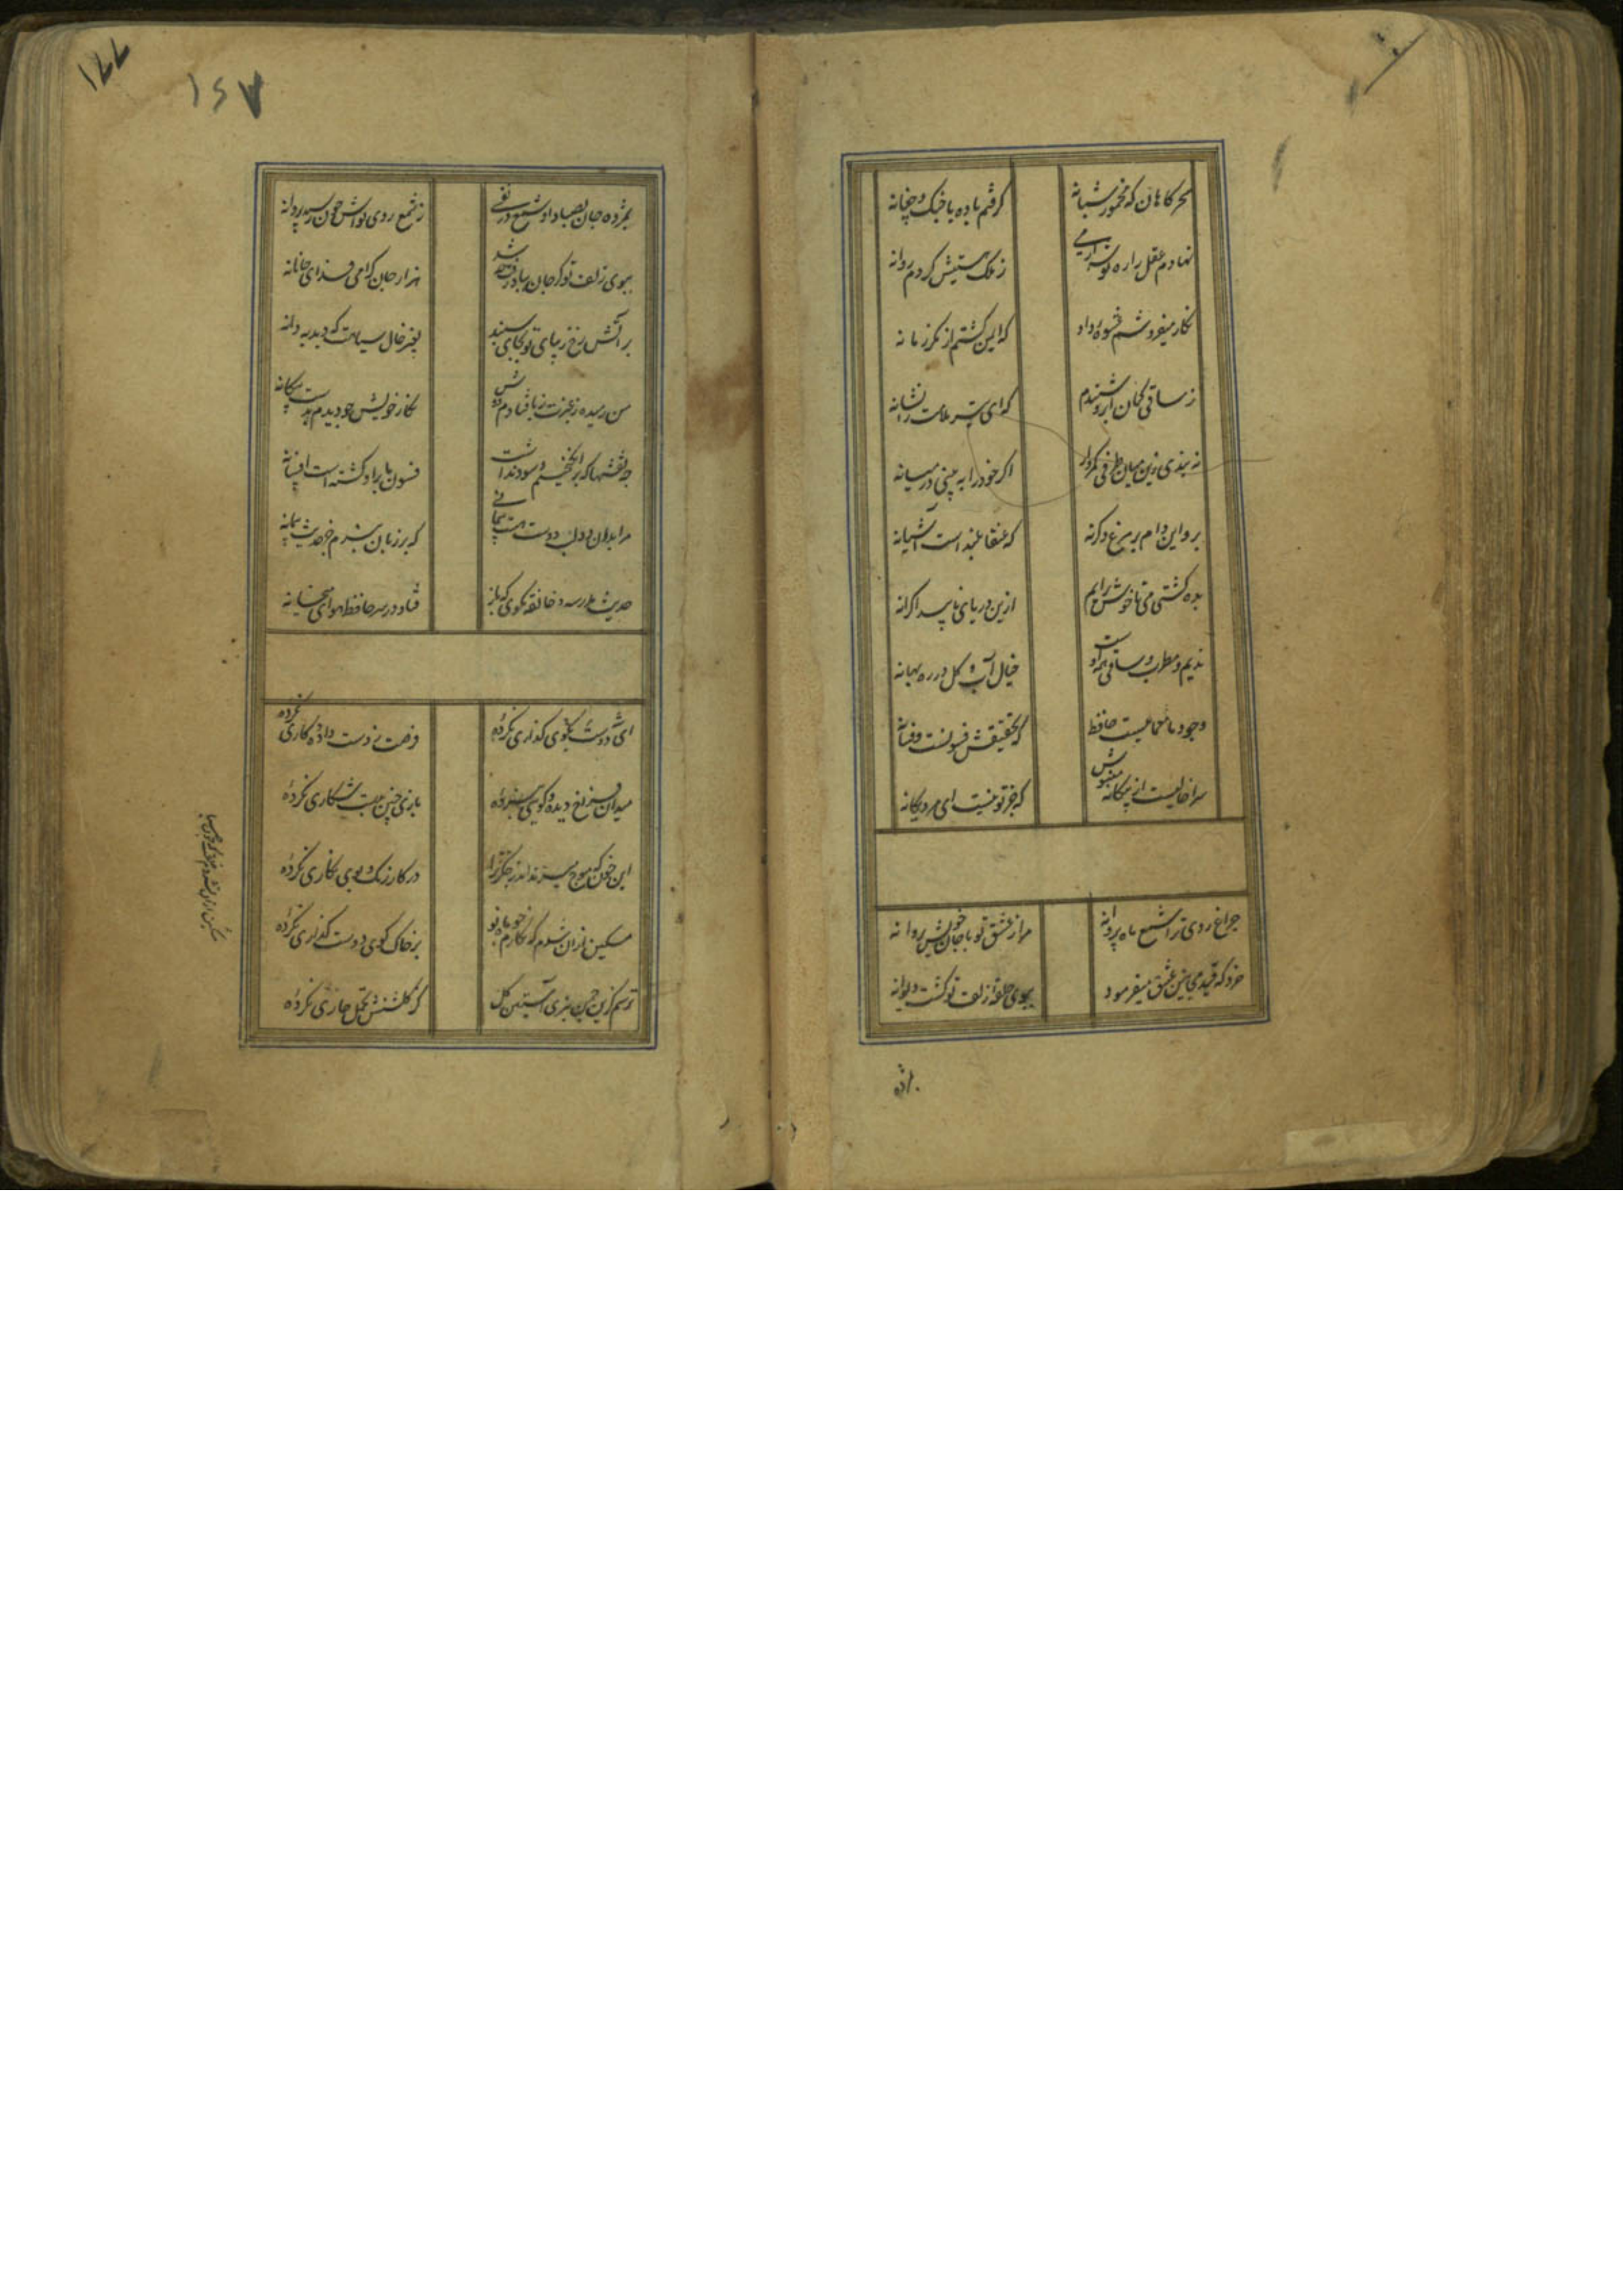 سحرگاهان که مخمور شبانه
گرفتم باده با چنگ و چغانه
نهادم عقل را ره توشه از می
ز ملک هستیش کردم روانه
نگار میفروشم عشوهٔ داد
که ایمن گشتم از مکر زمانه
ز ساقی کمان ابرو شنیدم
که ای تیر ملامت را نشانه
نه بندی زین میان طرفی کمروار
اگر خود را به بینی در میانه
برو این دام بر مرغ دگر نه
که عنقا بلند است آشیانه
بده کشتی می تا خوش برایم
ازین دریای ناپیدا کرانه
ندیم و مطرب و ساقی همه اوست
خیال آب و گل در ره بهانه
وجود ما معماییست حافظ
که تحقیقش فسونست و فسانه
سرا خالیست از بیگانه مینوش
که جز تو نیست ای مرد یگانه
چراغ روی ترا شمع ماه پروانه
مرا ز عشق تو با جان خویش پروا نه
خرد که قید مجانین عشق میفرمود
ببوی حلقهٔ زلف تو گشت دیوانه
بمژده جان بصبا داد شمع در نفسی
ز شمع روی تواش چون رسید پروانه
ببوی زلف تو گر جان بباد رفت چه شد
هزار جان گرامی فدای جانانه
بر آتش رخ زیبای تو بجای سپند
بغیر خال سیاهت که دید به دانه
من رمیده ز غیرت ز پا فتادم دوش
نگار خویش چو دیدم بدست بیگانه
چه نقشها که برانگیختیم و سود نداشت
فسون ما بر او گشته است افسانه
مرا بدور لب دوست هست پیمانی
که بر زبان نبرم جز حدیث پیمانه
حدیث مدرسه و خانقه مگوی که باز
فتاد در سر حافظ هوای میخانه
ای دوست بکوی گذاری نکردهٔ
فرصت ز دست داده و کاری نکرده
میدان فراخ دیده و گویی نبردهٔ
بازی چنین بدست شکاری نکردهٔ
این خون که موج میزند اندر جگر ترا
در کار رنگ و بوی نگاری نکردهٔ
مسکین ازان نشدم که نگارم چو باد تو
بر خاک کوی دوست گذاری نکردهٔ
ترسم کزین چمن نبری آستین گل
کز گلشنش تحمل خاری نکردهٔ